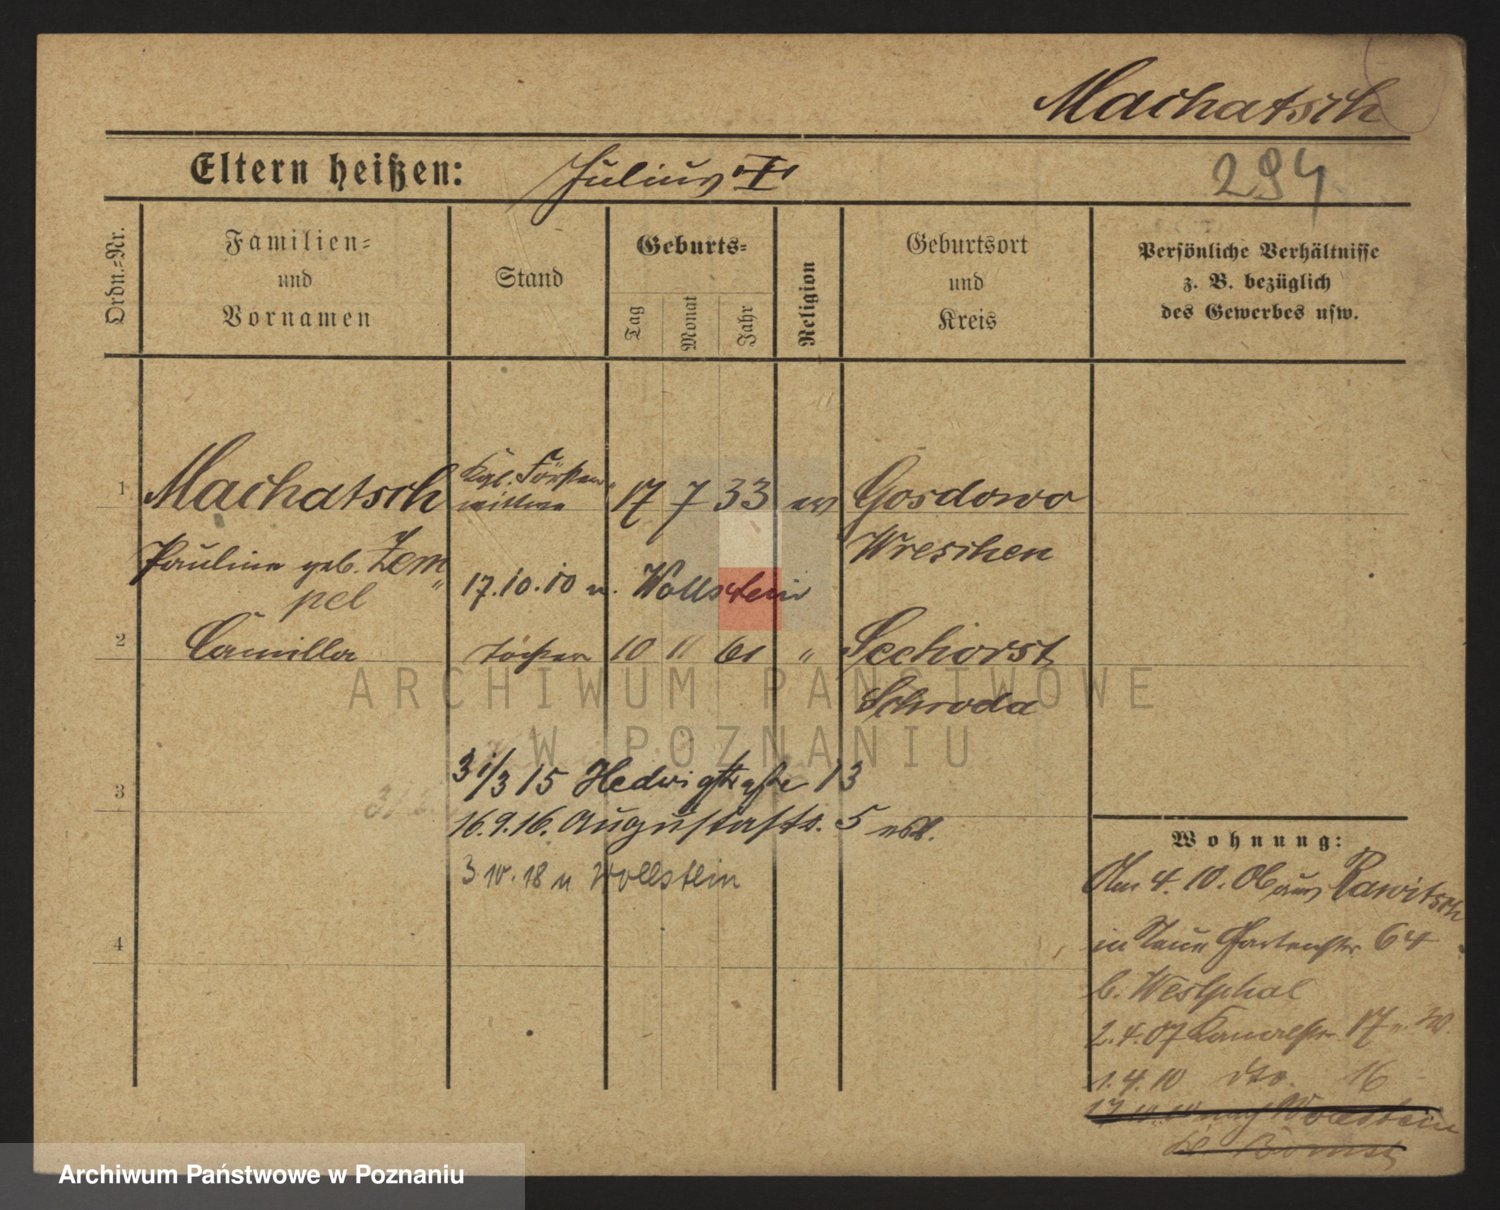 Machatsch
Eltern heißen: Julius †
294
Ordn.-Nr.
Familien-
und
Vornamen
Stand
Geburts-
Tag
Monat
Jahr
Religion
Geburtsort
und
Kreis
Persönliche Verhältnisse
z. B. bezüglich
des Gewerbes usw.
1 Machatsch Kgl. Förster 17 7 33 ev Gosdowo
wittwe
Pauline geb. Zem- Wreschen
pel
17.10.10 n. Wollstein
2 Camilla Tochter 10 11 61 " Seehorst
Schroda
3 1/3 15 Hedwigstraße 13
3
16.9.16. Augustastr. 5
3 10. 18 n Wollstein
4
Wohnung:
Am 4. 10. 06 aus Rawitsch
in Neue Gartenstr 64
b. Westphal
2.4.07 Kanalstr 17
1.4.10 dto. 16
17.10.10 nach Wollstein
Kr. Bomst
ARCHIWUM PAŃSTWOWE
W POZNANIU
Archiwum Państwowe w Poznaniu